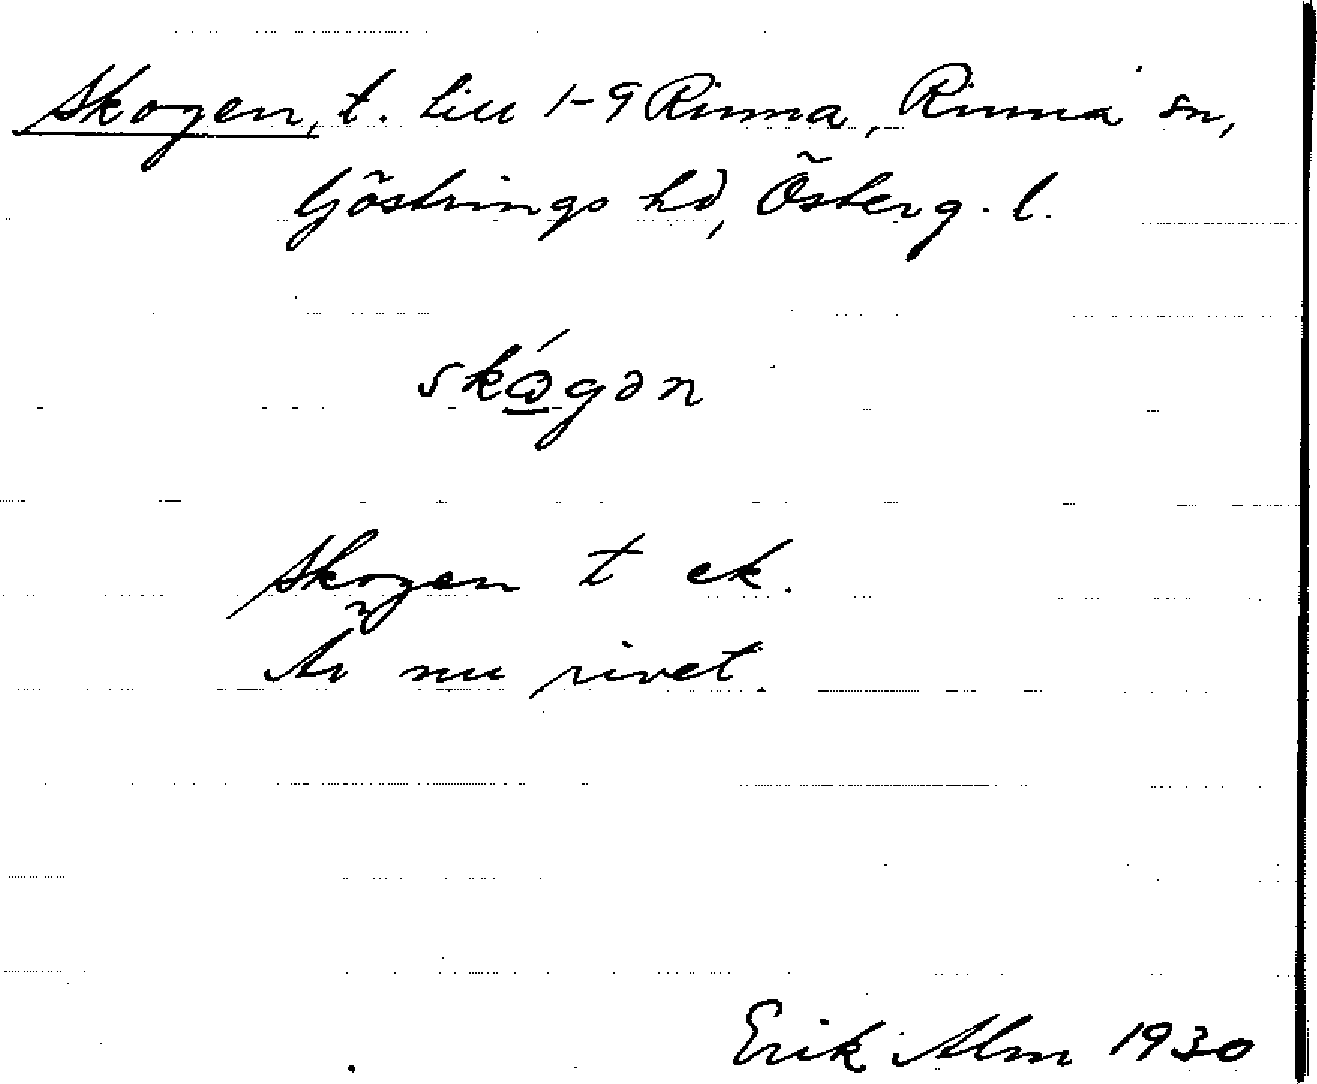 Skogen, t. till 1-9 Rinna, Rinna sn,
Göstrings hd, Österg. l.
skógən
Skogen t ek.
Är nu rivet.
Erik Alm 1930